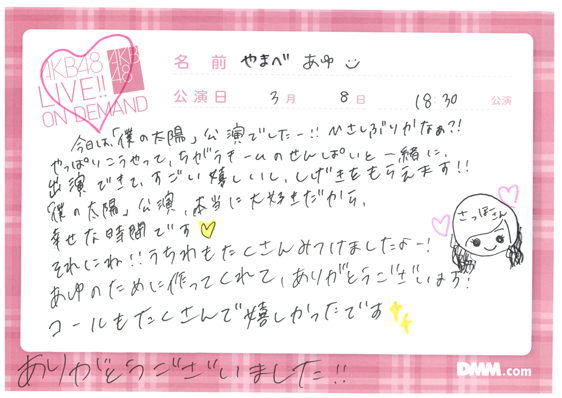 AKB48
LIVE!!
ON DEMAND
AKB
48
名前 やまべ あゆ
公演日 3月 8日 18:30 公演
今日は、「僕の太陽」公演でしたー!! ひさしぶりかなぁ?!
やっぱりこうやって、ちがうチームのせんぱいと一緒に、
出演できて、すごい嬉しいし、しげきをもらえます!!
「僕の太陽」公演、本当に大好きだから、
幸せな時間です
それにね!! うちわもたくさんみつけましたよー!
あゆのために作ってくれて、ありがとうございます!
コールもたくさんで嬉しかったです
さっほさん
ありがとうございました!!
DMM.com